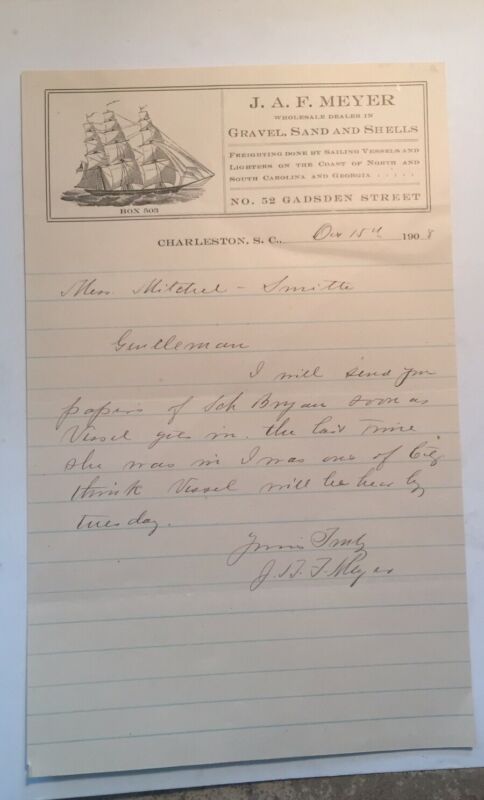 J. A. F. MEYER
WHOLESALE DEALER IN
GRAVEL, SAND AND SHELLS
FREIGHTING DONE BY SAILING VESSELS AND
LIGHTERS ON THE COAST OF NORTH AND
SOUTH CAROLINA AND GEORGIA . . . . .
NO. 52 GADSDEN STREET
BOX 503
CHARLESTON, S. C., 15th 1908
Mess. Mitchel - Smith
Gentleman
I will send you
papers of Sch Bryan soon as
Vessel gets in. the last time
she was in I was out of City
think Vessel will be hear by
tuesday.
Yours Truly
J. A. F. Meyer